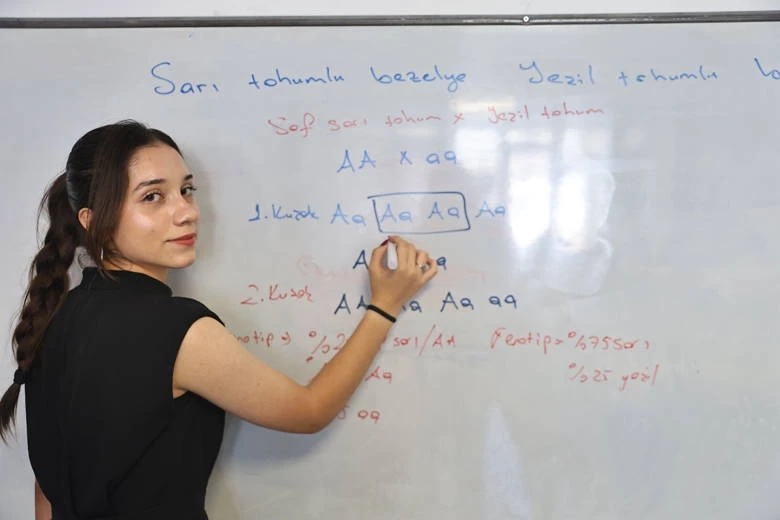 Sarı tohumlu bezelye Yeşil tohumlu
Saf sarı tohum x Yeşil tohum
AA x aa
1. Kuşak Aa Aa Aa Aa
2. Kuşak AA Aa aa
sarı/AA Fenotip> %75 sarı
Aa %25 yeşil
aa